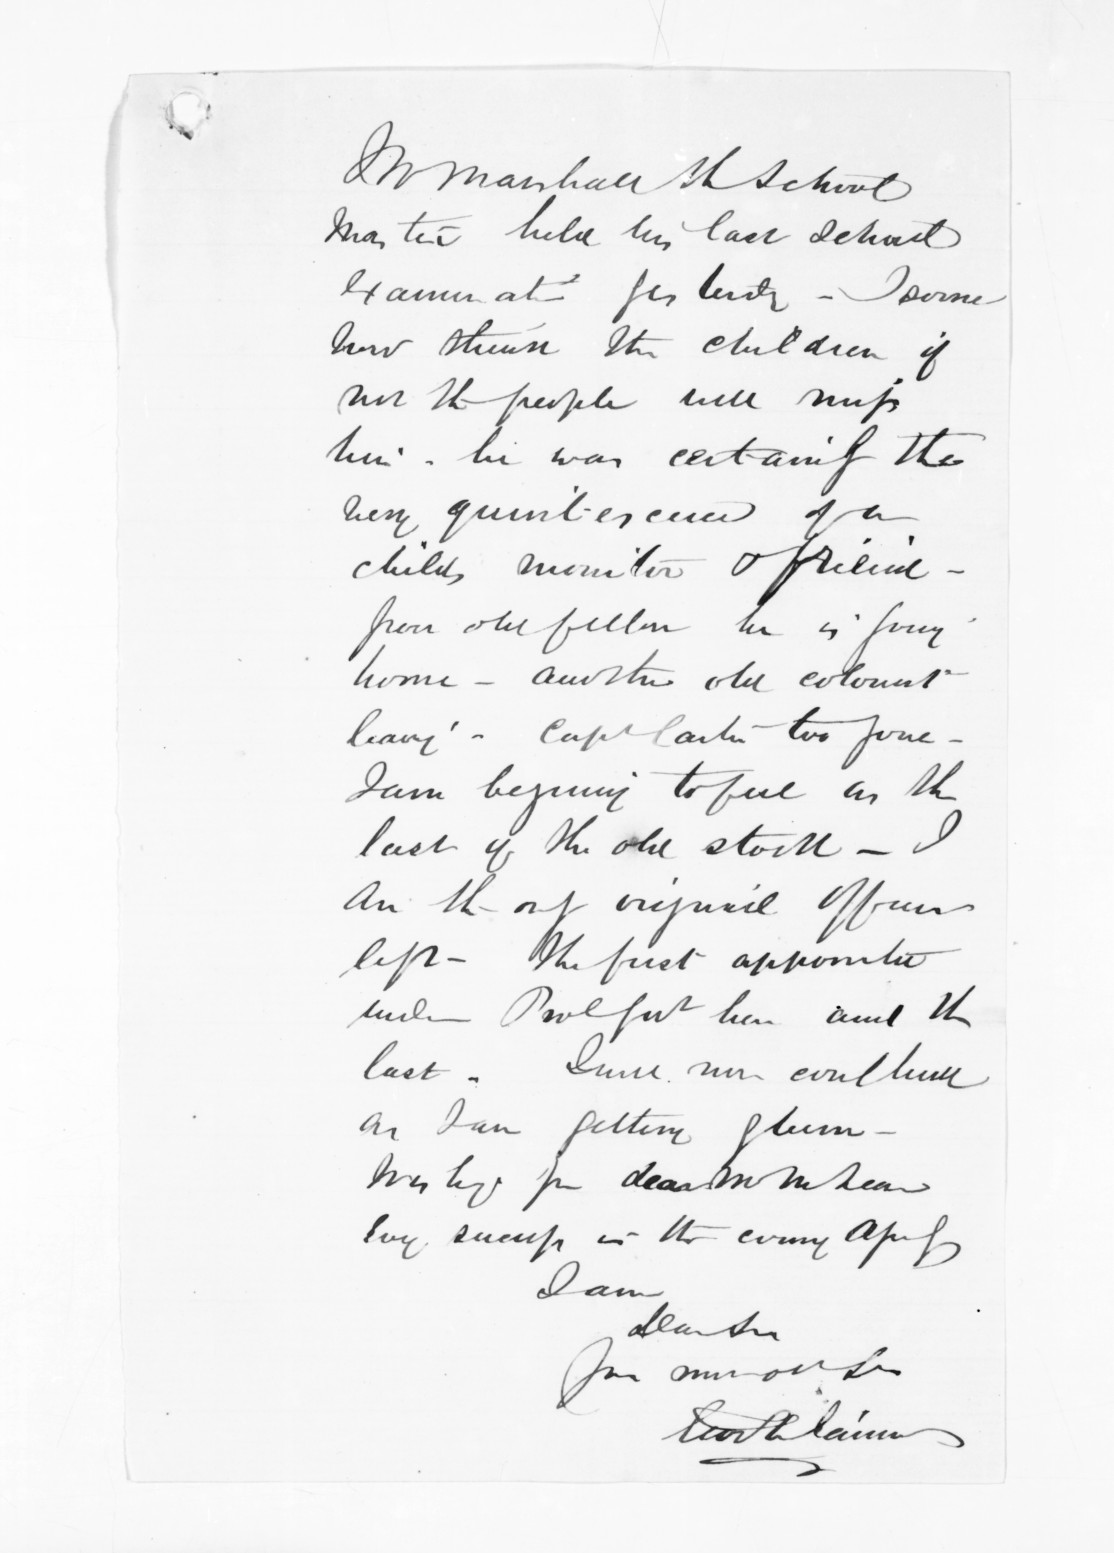 J W Marshall the School
Master held his last school
examinatn yesterdy - I some
how think the children if
not the people will miss
him - he was certainly the
very quintescence of a
childs monitor & friend -
poor old fellow he is going
home - another old colonist
leavg - Capt Carter too gone -
I am beginning to feel as the
last of the old stock - I
am the only original Officer
left - the first appointed
under Provl Govt here and the
last - I will now conclude
as I am getting glum -
Wishg you dear Mr McLean
Evy success in the coming
I am
dear Sir
your most ob Ser